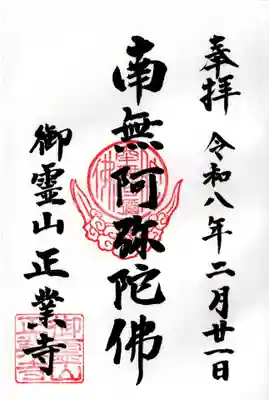 奉拝 令和八年二月廿一日
南無阿弥陀佛
御霊山 正業寺